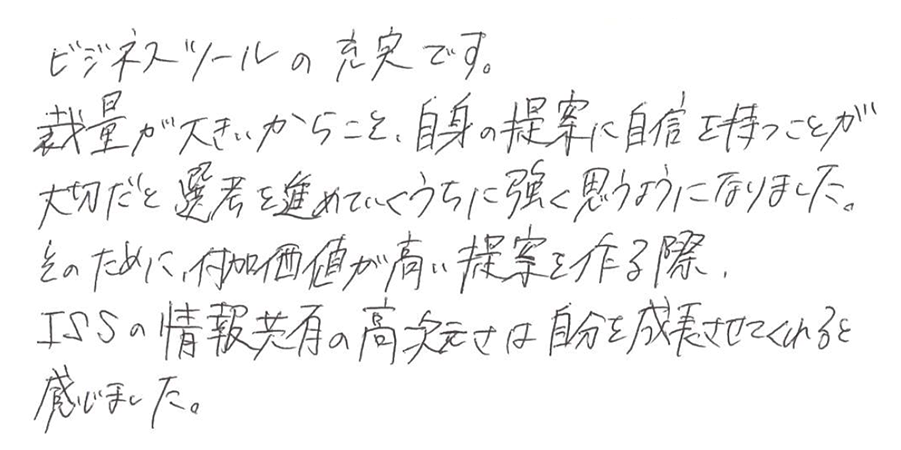 ビジネスツールの充実です。
裁量が大きいからこそ、自身の提案に自信を持つことが
大切だと選考を進めていくうちに強く思うようになりました。
そのために、付加価値が高い提案を作る際、
ISSの情報共有の高次元さは自分を成長させてくれると
感じました。